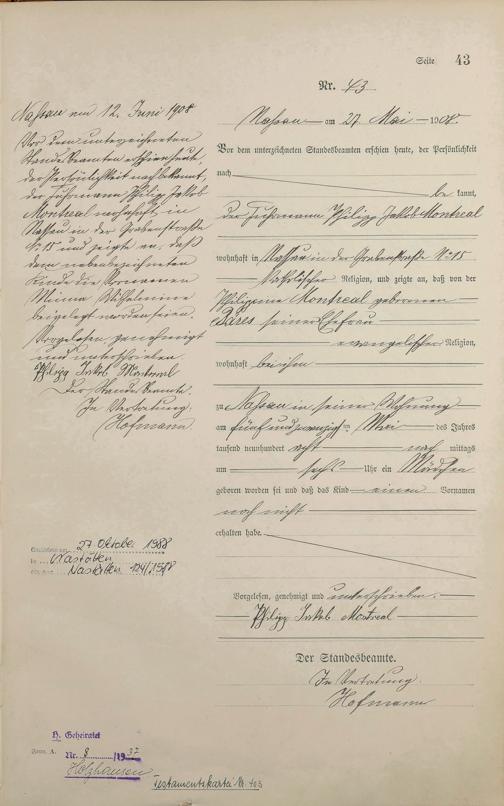 Seite 43
Nr. 43
Nassau am 27. Mai 1908.
Vor dem unterzeichneten Standesbeamten erschien heute, der Persönlichkeit
nach
be kannt,
der Fuhrmann Philipp Jakob Montreal
wohnhaft in Nassau in der Grabenstraße No 15
katholischer Religion, und zeigte an, daß von der
Philippine Montreal geborenen
seiner Ehefrau
evangelischer Religion,
wohnhaft bei ihm
zu Nassau in seiner Wohnung
am fünf und zwanzigsten Mai des Jahres
tausend neunhundert acht nach mittags
um sechs Uhr ein Mädchen
geboren worden sei und daß das Kind einen Vornamen
noch nicht
erhalten habe.
Vorgelesen, genehmigt und unterschrieben.
Philipp Jakob Montreal
Der Standesbeamte.
In Vertretung.
Hofmann
Nassau am 12. Juni 1908
Vor dem unterzeichneten
Standesbeamten erschien heute,
der Persönlichkeit nach bekannt,
der Fuhrmann Philipp Jakob
Montreal wohnhaft in
Nassau in der Grabenstraße
No 15 und zeigte an, daß
dem nebenbezeichneten
Kinde die Vornamen
Minna Wilhelmine
beigelegt worden seien.
Vorgelesen, genehmigt
und unterschrieben
Philipp Jakob Montreal
Der Standesbeamte.
In Vertretung.
Hofmann
27. Oktober 1988
Nastätten
Nastätten
H. Geheiratet
Form. A. Nr. 8 /1937
Holzhausen
Testamentskartei Nr. 403